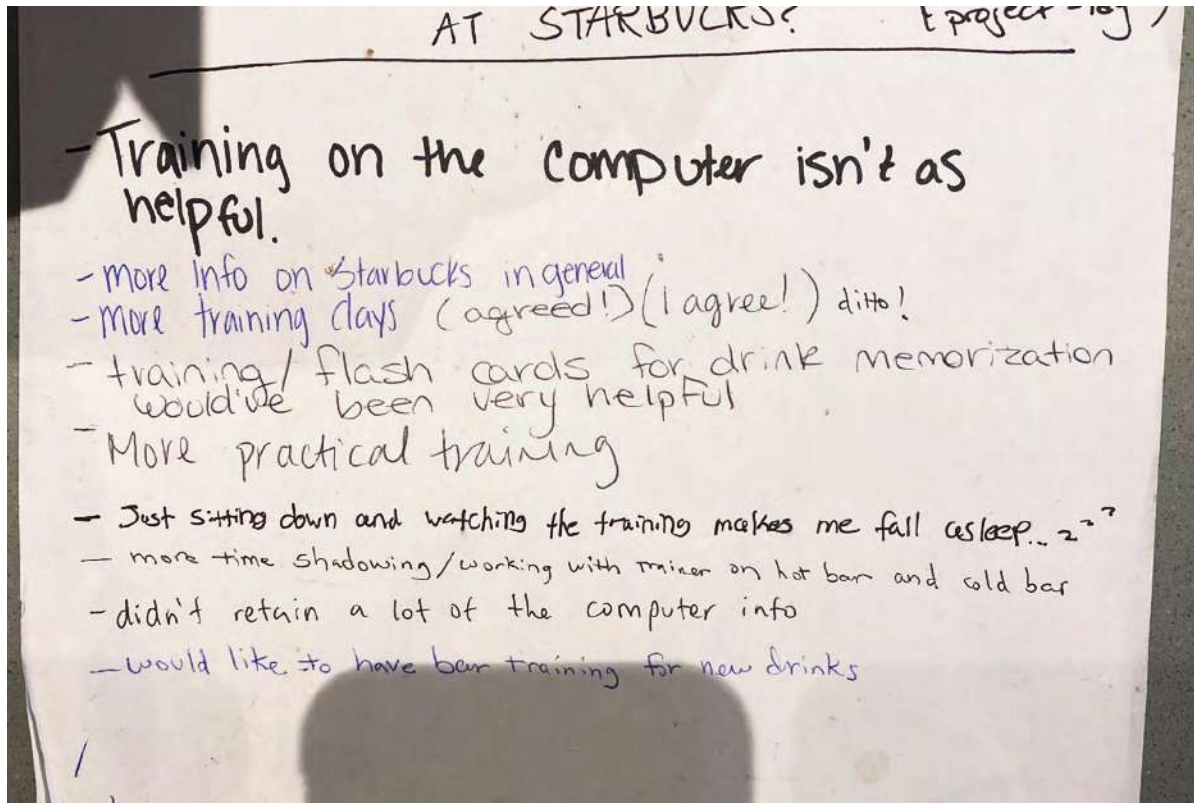 AT STARBUCKS?
- Training on the computer isn't as
helpful.
- more info on Starbucks in general
- more training days (agreed!) (I agree!) ditto!
- training/flash cards for drink memorization
would've been very helpful
- More practical training
- Just sitting down and watching the training makes me fall asleep... zzz
- more time shadowing/working with trainer on hot bar and cold bar
- didn't retain a lot of the computer info
- would like to have bar training for new drinks